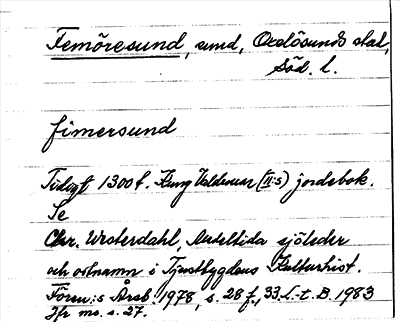 Femöresund, sund, Oxelösunds stad,
Söd. l.
fimersund
Tidigt 1300 t. Kung Valdemar (II:s) jordebok.
Se
Chr. Westerdahl, Medeltida sjöleder
och ortnamn i Tjustbygdens Kulturhist.
Fören:s Årsb. 1978, s. 28 f., 33. L.-t. B. 1983
Jfr ms. s. 27.